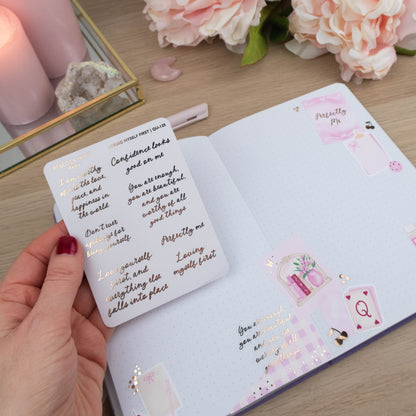 MYSELF FIRST | QU-125
Confidence looks
good on me
I am worthy
of all the love,
peace, and
happiness in
the world
You are enough,
you are beautiful,
and you are
worthy of all
good things
Don't ever
apologize for
being yourself
Perfectly me
Love yourself
first, and
everything else
falls into place
Loving
myself first
Perfectly
Me
Q
You are enough,
you are beautiful,
and you are
worthy of all
good things